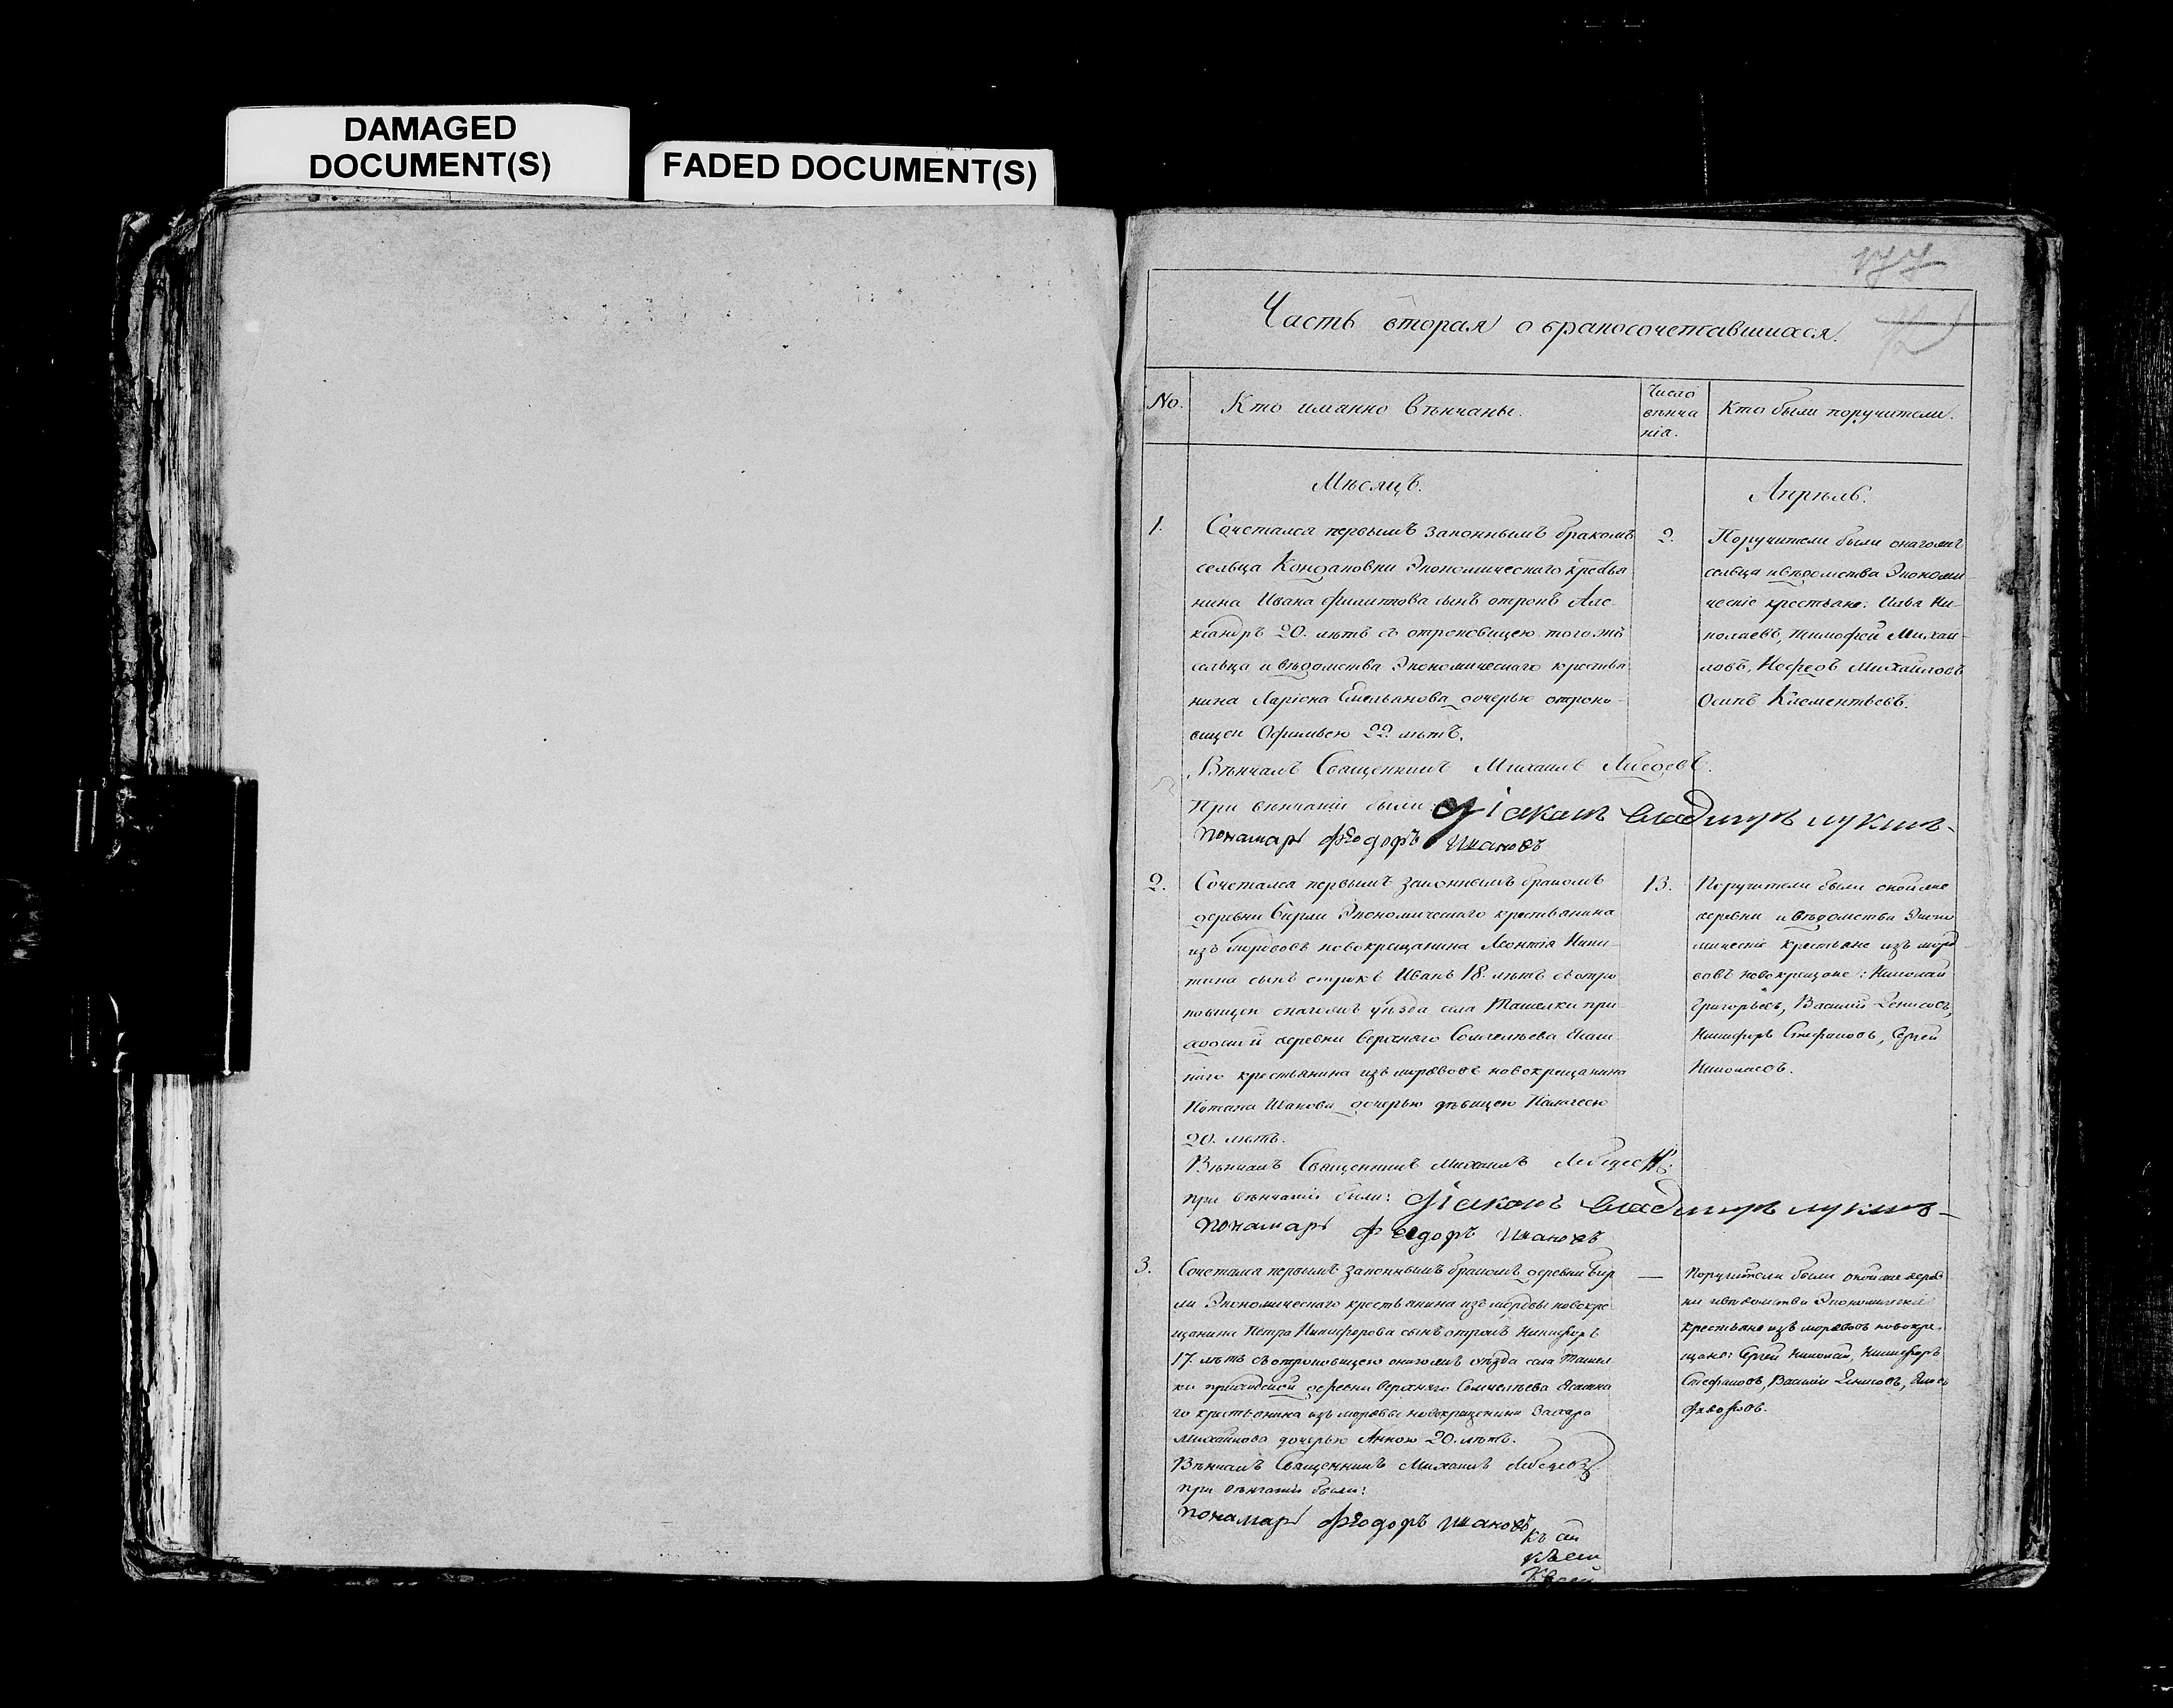 DAMAGED
DOCUMENT(S)
FADED DOCUMENT(S)
177
Часть вторая о бракосочетавшихся.
No.
Кто имянно вѣнчаны.
Число
вѣнча
нія.
Кто были поручители.
Мѣсяцъ.
Апрѣль.
1.
Сочетался первымъ законнымъ бракомъ
сельца Экономическаго кресьтья
нина Ивана Филиппова сынъ отрокъ Але
ксандръ 20. лѣтъ съ отроковицею тогожъ
сельца и вѣдомства Экономическаго крестья
нина Ларіона Емельянова дочерью отроко-
вицею Офимьею 22 лѣтъ.
Вѣнчалъ Священникъ Михаилъ
При вѣнчаніи были: Діаконъ Владимиръ Лукинъ
пономарь Ѳеодоръ Ивановъ
2.
Поручители были онагожъ
сельца и вѣдомства Экономи-
ческіе крестьяне: Илья Ни-
колаевъ, Тимофей Михай-
ловъ, Михайловъ
Осипъ Клементьевъ.
2.
Сочетался первымъ законнымъ бракомъ
деревни Бирли Экономическаго крестьянина
изъ мордовъ новокрещанина Леонтія Ники-
тина сынъ отрокъ Иванъ 18. лѣтъ съ отро
ковицею онагожъ уѣзда села Ташелки при-
деревни Верхняго
наго крестьянина изъ мордовъ новокрещанина
Потапа Иванова дочерью дѣвицею Палагеею
20. лѣтъ.
Вѣнчалъ Священникъ Михаилъ
при вѣнчаніи были: Діаконъ Владимиръ Лукинъ
пономарь Ѳеодоръ Ивановъ
13.
Поручители были онойже
деревни и вѣдомства Эконо
мическіе крестьяне изъ морд
вовъ новокрещоне: Николай
Григорьевъ, Василій Денисовъ,
Никифоръ Стефановъ, Сергей
Николаевъ.
3.
Сочетался первымъ законнымъ бракомъ деревни Бир
ли Экономическаго крестьянина изъ мордвы новокре
щанина Петра Никифорова сынъ отрокъ Никифоръ
17. лѣтъ съ отроковицею онагожъ уѣзда села Ташел
ки деревни Верхняго
го крестьянина изъ мордвы новокрещенина Захара
Михайлова дочерью Анною 20. лѣтъ.
Вѣнчалъ Священникъ Михаилъ
при вѣнчаніи были:
пономарь Ѳеодоръ Ивановъ
—
Поручители были онойже дерев
ни и вѣдомства Экономическіе
крестьяне изъ мордвовъ новокре-
щане: Сергей Николаи, Никифоръ
Стефановъ, Василій Денисовъ,